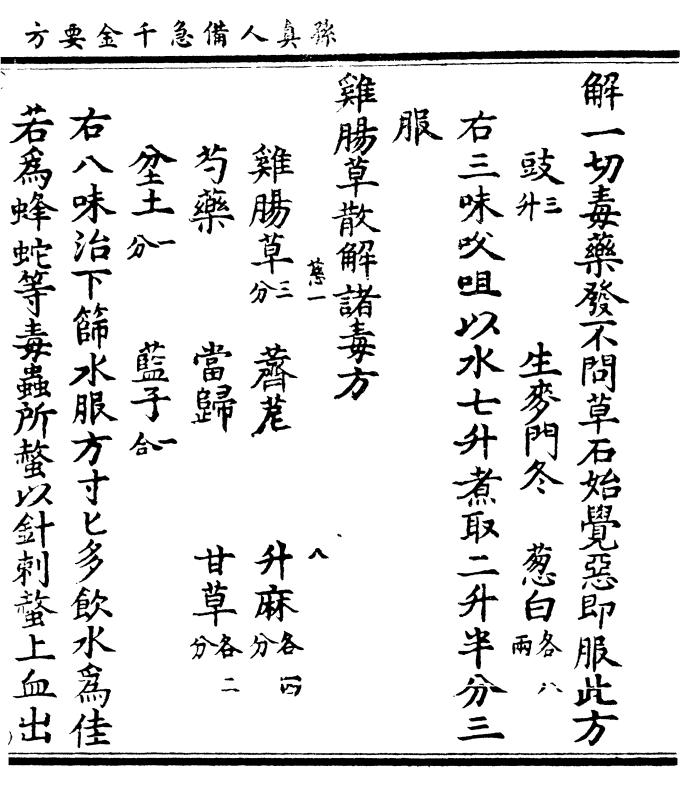 孫真人備急千金要方
解一切毒藥發不問草石始覺惡即服此方
豉三升 生麥門冬 葱白各八兩
右三味㕮咀以水七升煮取二升半分三
服
雞腸草散解諸毒方
葱一 八
雞腸草三分 薺苨 升麻各四分
芍藥 當歸 甘草各二分
坌土一分 藍子一合
右八味治下篩水服方寸匕多飲水爲佳
若爲蜂蛇等毒蟲所螫以針刺螫上血出